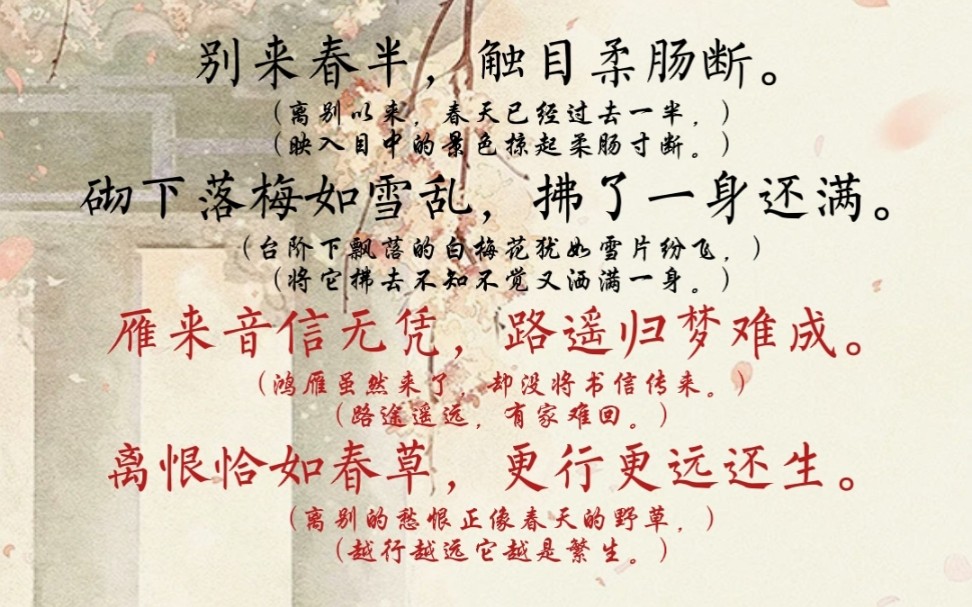 别来春半，触目柔肠断。
（离别以来，春天已经过去一半，）
（映入目中的景色掠起柔肠寸断。）
砌下落梅如雪乱，拂了一身还满。
（台阶下飘落的白梅花犹如雪片纷飞，）
（将它拂去不知不觉又洒满一身。）
雁来音信无凭，路遥归梦难成。
（鸿雁虽然来了，却没将书信传来。）
（路途遥远，有家难回。）
离恨恰如春草，更行更远还生。
（离别的愁恨正像春天的野草，）
（越行越远它越是繁生。）